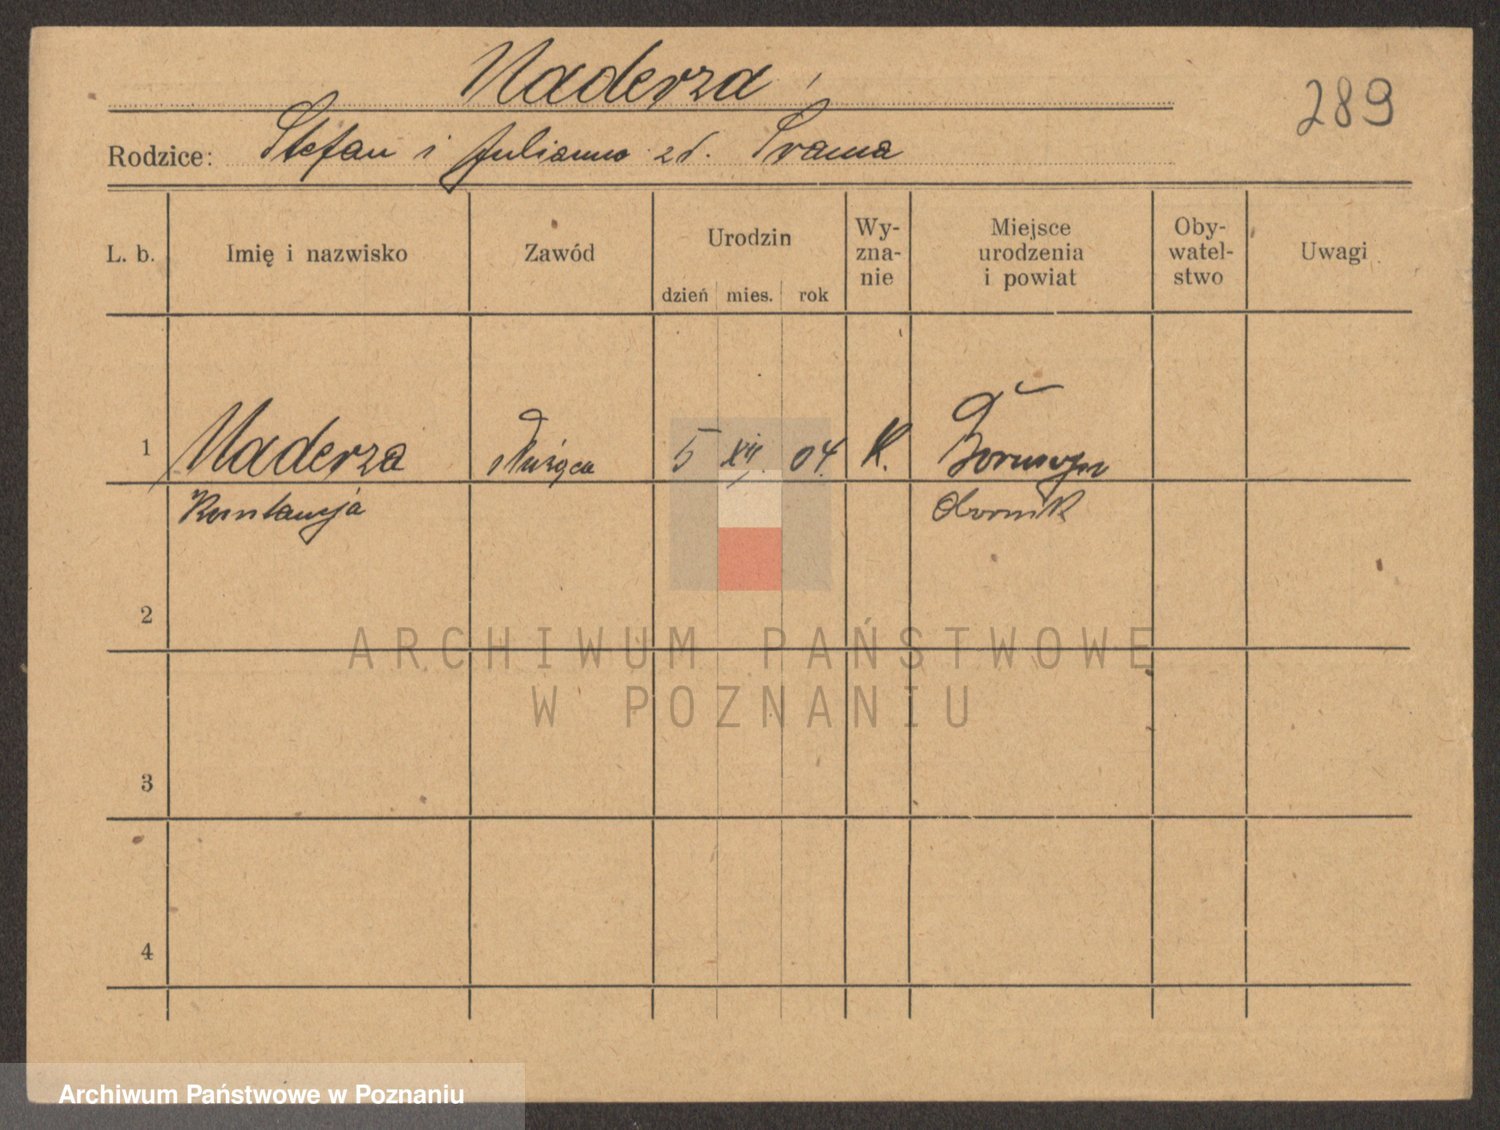 Naderza
289
Rodzice: Stefan i Julianna zd. Srama
L. b. Imię i nazwisko Zawód Urodzin dzień mies. rok Wy-zna-nie Miejsce urodzenia i powiat Oby-watel-stwo Uwagi
1 Naderza służąca 5 XII. 04. K.
Konstancja Obornik
2
ARCHIWUM PAŃSTWOWE
W POZNANIU
3
4
Archiwum Państwowe w Poznaniu